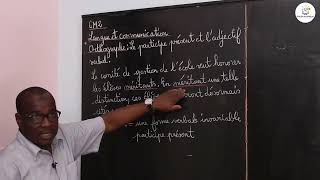 CM2
Langue et communication
Orthographe : Le participe présent et l'adjectif
verbal.
Le comité de gestion de l'école veut honorer
les élèves méritants. En méritant une telle
distinction, ces élèves seront désormais
= une forme verbale invariable
participe présent